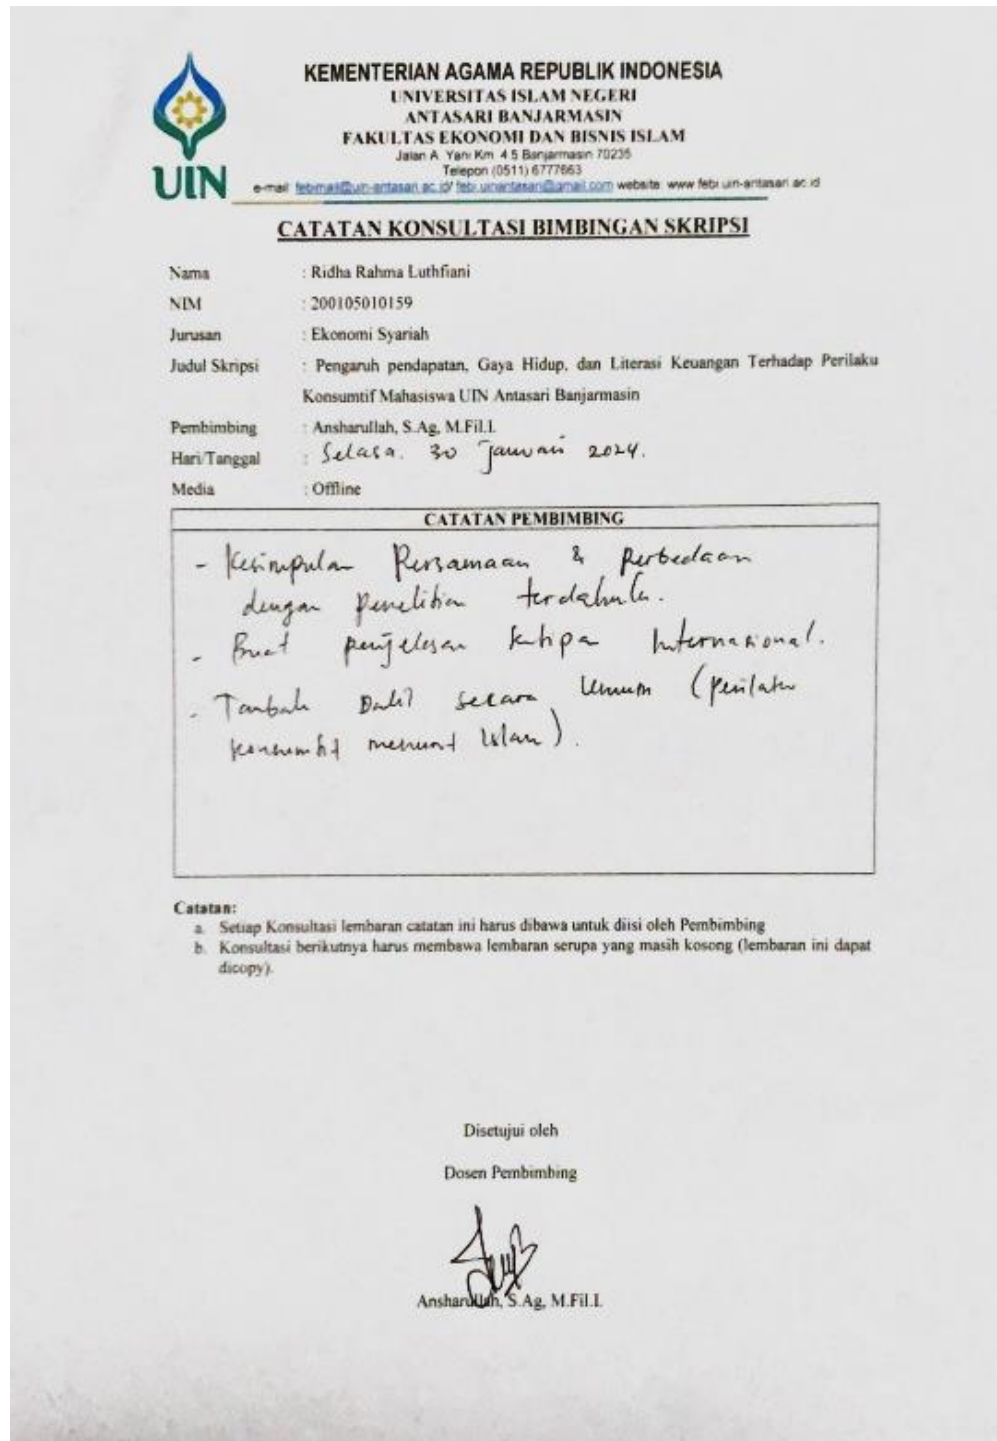 KEMENTERIAN AGAMA REPUBLIK INDONESIA
UNIVERSITAS ISLAM NEGERI
ANTASARI BANJARMASIN
FAKULTAS EKONOMI DAN BISNIS ISLAM
Jalan A. Yani Km. 4.5 Banjarmasin 70235
Telepon (0511) 6777663
UIN
e-mail: febimail@uin-antasari.ac.id/ febi.uinantasari@gmail.com website: www.febi.uin-antasari.ac.id
CATATAN KONSULTASI BIMBINGAN SKRIPSI
Nama : Ridha Rahma Luthfiani
NIM : 200105010159
Jurusan : Ekonomi Syariah
Judul Skripsi : Pengaruh pendapatan, Gaya Hidup, dan Literasi Keuangan Terhadap Perilaku
Konsumtif Mahasiswa UIN Antasari Banjarmasin
Pembimbing : Ansharullah, S.Ag, M.Fil.I.
Hari/Tanggal : Selasa. 30 Januari 2024.
Media : Offline
CATATAN PEMBIMBING
- Kesimpulan Persamaan & Perbedaan
dengan penelitian terdahulu.
- Buat penjelasan kutipan Internasional.
- Tambah Dalil secara Umum (perilaku
konsumtif menurut Islam).
Catatan:
a. Setiap Konsultasi lembaran catatan ini harus dibawa untuk diisi oleh Pembimbing
b. Konsultasi berikutnya harus membawa lembaran serupa yang masih kosong (lembaran ini dapat
dicopy).
Disetujui oleh
Dosen Pembimbing
Ansharullah, S.Ag, M.Fil.I.